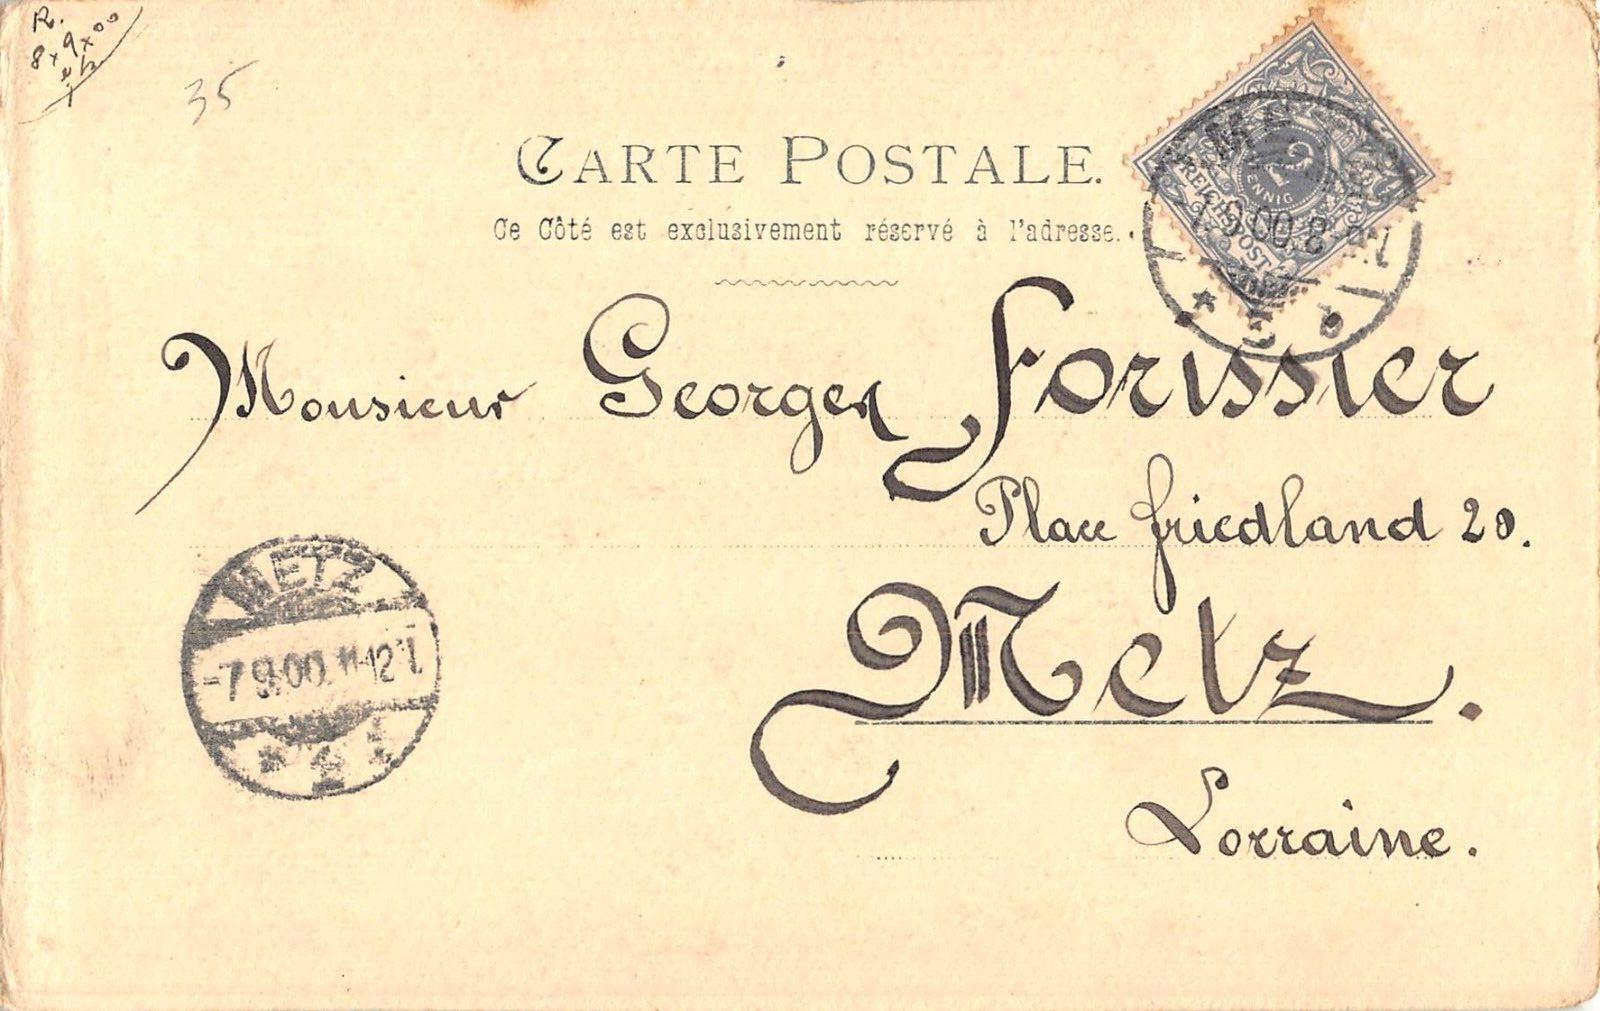 R.
8 x 9 x 00
35
CARTE POSTALE.
Ce Côté est exclusivement réservé à l'adresse.
2
PFENNIG
REICHSPOST
9.00 8-9N
Monsieur Georges Forissier
Place Friedland 20.
Metz.
Lorraine.
METZ
-7 9.00. 11-12V.
* 1 *